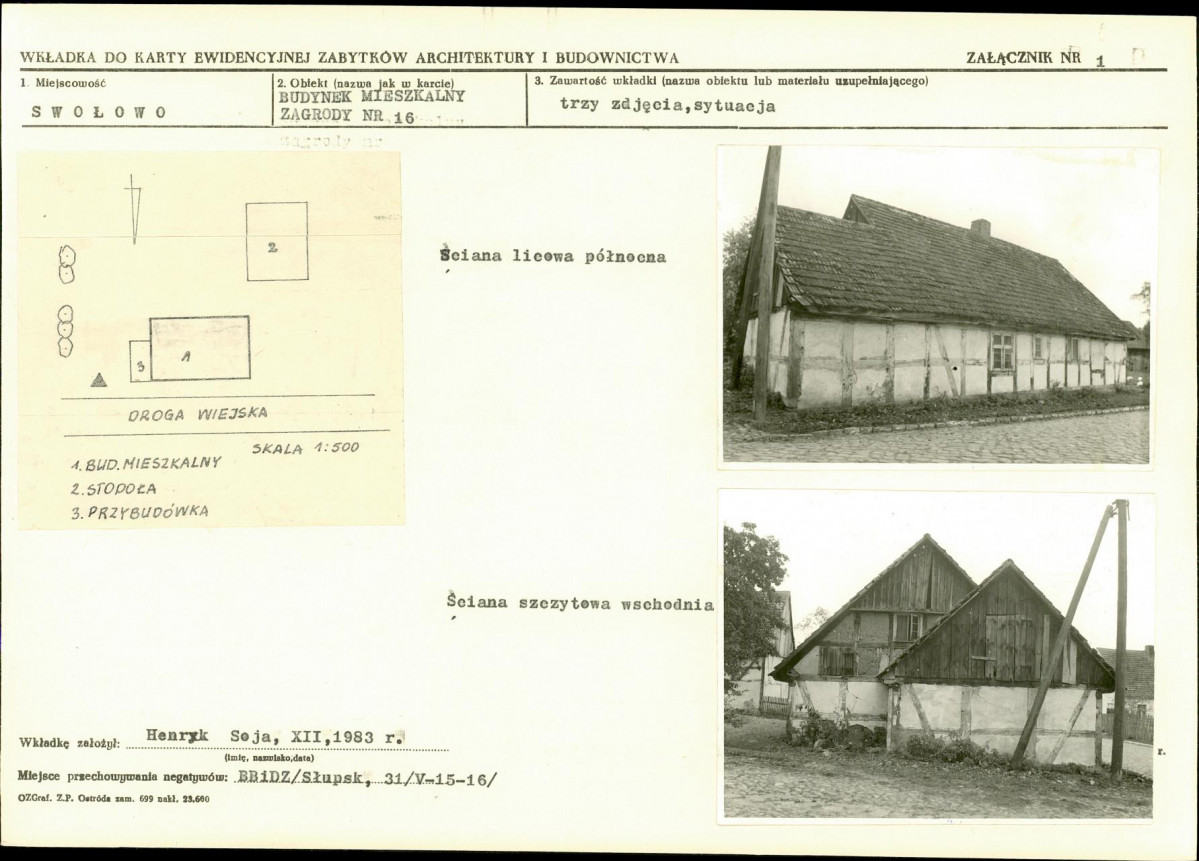 WKŁADKA DO KARTY EWIDENCYJNEJ ZABYTKÓW ARCHITEKTURY I BUDOWNICTWA
ZAŁĄCZNIK NR 1
1. Miejscowość
SWOŁOWO
2. Obiekt (nazwa jak w karcie)
BUDYNEK MIESZKALNY
ZAGRODY NR 16
zagrody nr
3. Zawartość wkładki (nazwa obiektu lub materiału uzupełniającego)
trzy zdjęcia,sytuacja
2
1
3
DROGA WIEJSKA
SKALA 1:500
1. BUD. MIESZKALNY
2. STODOŁA
3. PRZYBUDÓWKA
Ściana licowa północna
Ściana szczytowa wschodnia
Wkładkę założył: Henryk Soja, XII,1983 r.
(imię, nazwisko,data)
Miejsce przechowywania negatywów: BBiDZ/Słupsk, 31/V-15-16/
OZGraf. Z.P. Ostróda zam. 699 nakł. 23.600
r.